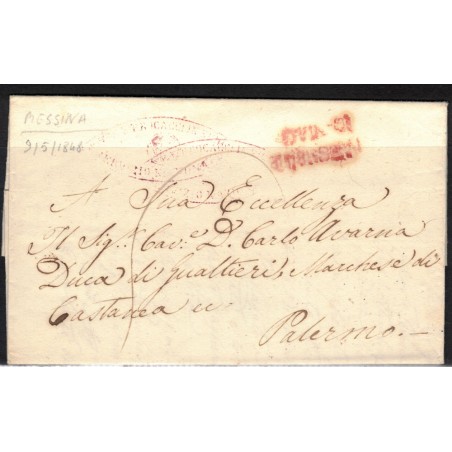 MESSINA
9/5/1846
A Sua Eccellenza
Il Sig.r Cav.e D. Carlo Avarna
Duca di Gualtieri, Marchese di
Castanea ec
Palermo.—